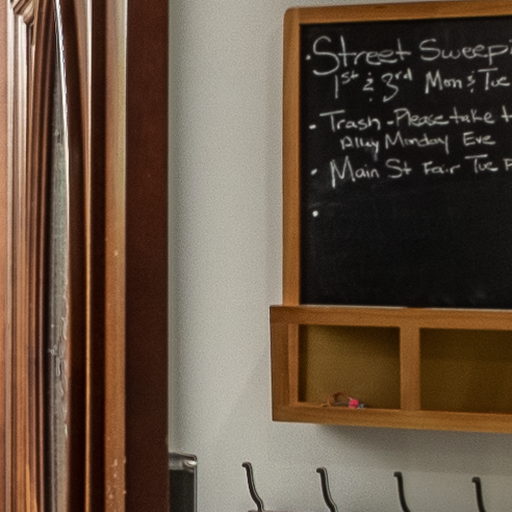 Street Sweepi
1st & 3rd Mon & Tue
Trash - Please take t
Alley Monday Eve
Main St Fair Tue